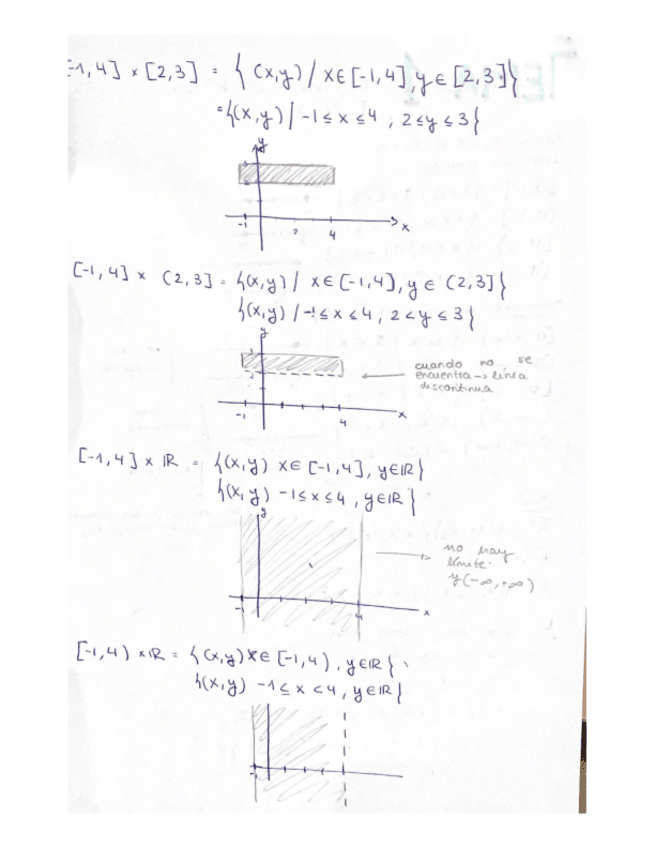 -1,4] × [2,3] = { (x,y) / x∈[-1,4], y∈[2,3]}
={(x,y) / -1≤x≤4 ; 2≤y≤3}
y
-1 4 x
[-1,4] × (2,3] = {(x,y) / x∈[-1,4], y∈(2,3]}
{(x,y) / -1≤x≤4, 2<y≤3}
y
2
cuando no se
encuentra → línea
discontinua
-1 4 x
[-1,4] × IR = {(x,y) x∈[-1,4], y∈IR}
{(x,y) -1≤x≤4, y∈IR}
y
no hay
límite.
y(-∞,+∞)
-1 4 x
[-1,4) × IR = {(x,y) x∈[-1,4), y∈IR}
{(x,y) -1≤x<4, y∈IR}